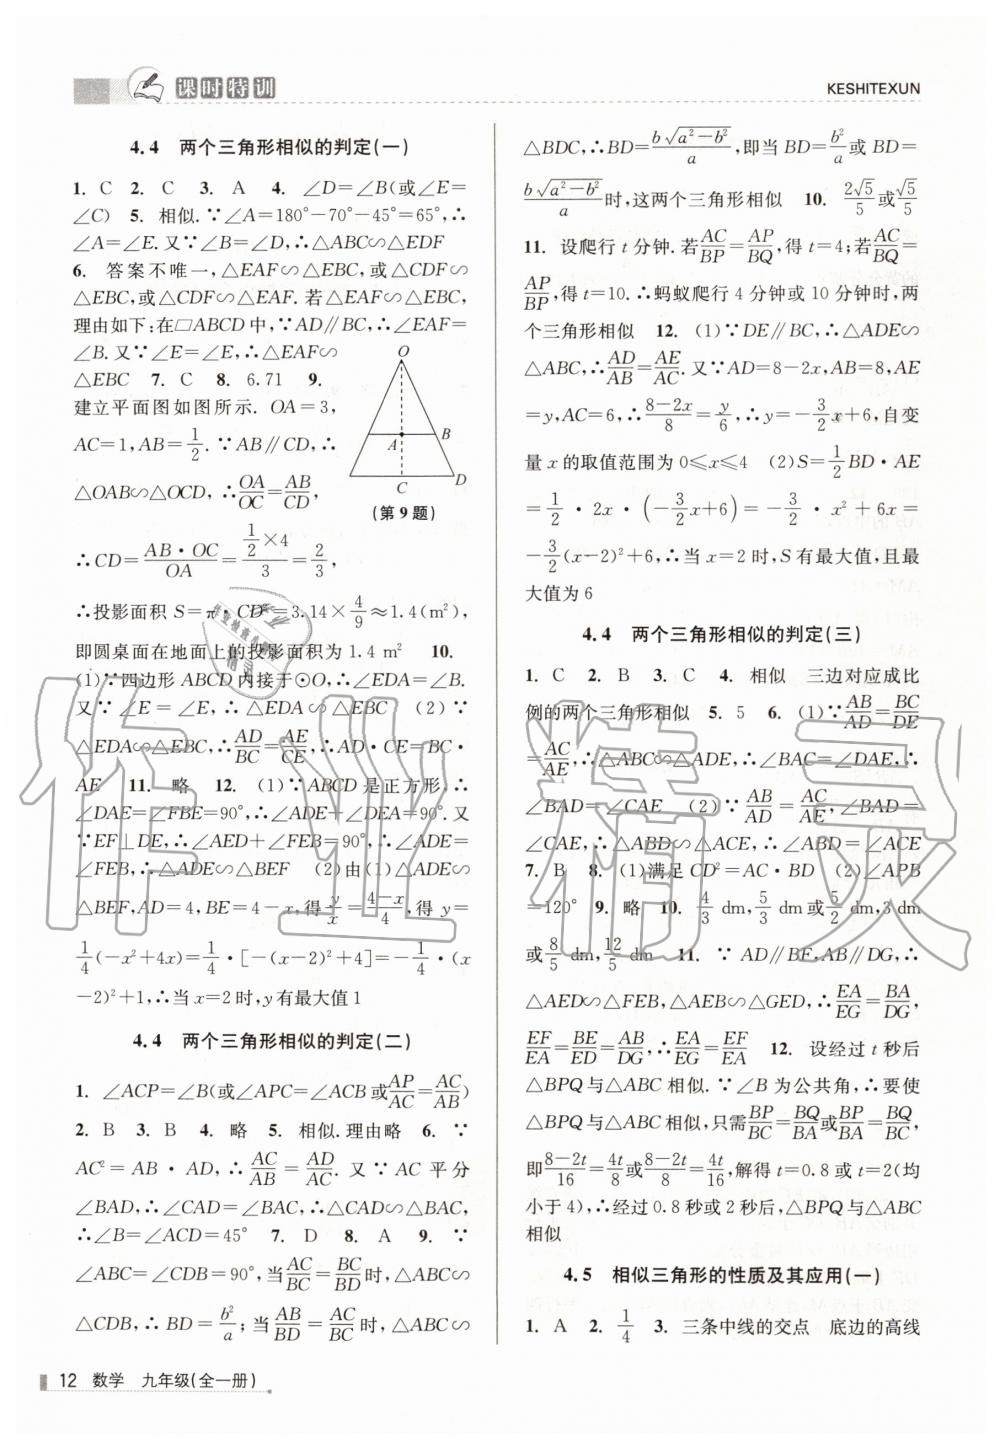 课时特训
KESHITEXUN
4.4 两个三角形相似的判定(一)
1. C 2. C 3. A 4. ∠D=∠B(或∠E=
∠C) 5. 相似.∵∠A=180°-70°-45°=65°,∴
∠A=∠E.又∵∠B=∠D,∴△ABC∽△EDF
6. 答案不唯一,△EAF∽△EBC,或△CDF∽
△EBC,或△CDF∽△EAF.若△EAF∽△EBC,
理由如下:在□ABCD中,∵AD∥BC,∴∠EAF=
∠B.又∵∠E=∠E,∴△EAF∽
△EBC 7. C 8. 6.71 9.
建立平面图如图所示. OA=3,
AC=1,AB=1/2.∵AB∥CD,∴
△OAB∽△OCD,∴OA/OC=AB/CD,
O
A
B
C
D
(第9题)
∴CD=AB·OC/OA=(1/2×4)/3=2/3,
∴投影面积 S=π·CD²=3.14×4/9≈1.4(m²),
即圆桌面在地面上的投影面积为1.4 m² 10.
(1)∵四边形ABCD内接于⊙O,∴∠EDA=∠B.
又∵∠E=∠E,∴△EDA∽△EBC (2)∵
△EDA∽△EBC,∴AD/BC=AE/CE,∴AD·CE=BC·
AE 11. 略 12. (1)∵ABCD是正方形,∴
∠DAE=∠FBE=90°,∴∠ADE+∠DEA=90°.又
∵EF⊥DE,∴∠AED+∠FEB=90°,∴∠ADE=
∠FEB,∴△ADE∽△BEF (2)由(1)△ADE∽
△BEF,AD=4,BE=4-x,得y/x=(4-x)/4,得 y=
1/4(-x²+4x)=1/4·[-(x-2)²+4]=-1/4·(x
-2)²+1,∴当x=2时,y有最大值1
4.4 两个三角形相似的判定(二)
1. ∠ACP=∠B(或∠APC=∠ACB或AP/AC=AC/AB)
2. B 3. B 4. 略 5. 相似.理由略 6. ∵
AC²=AB·AD,∴AC/AB=AD/AC.又∵AC平分
∠BAD,∴∠CAD=∠BAC,∴△CAD∽△BAC,
∴∠B=∠ACD=45° 7. D 8. A 9. ∵
∠ABC=∠CDB=90°,当AC/BC=BC/BD时,△ABC∽
△CDB,∴BD=b²/a;当AB/BD=AC/BC时,△ABC∽
△BDC,∴BD=b√(a²-b²)/a,即当BD=b²/a或BD=
b√(a²-b²)/a时,这两个三角形相似 10. 2√5/5或√5/5
11. 设爬行t分钟.若AC/BP=AP/BQ,得t=4;若AC/BQ=
AP/BP,得t=10.∴蚂蚁爬行4分钟或10分钟时,两
个三角形相似 12. (1)∵DE∥BC,∴△ADE∽
△ABC,∴AD/AB=AE/AC.又∵AD=8-2x,AB=8,AE
=y,AC=6,∴(8-2x)/8=y/6,∴y=-3/2x+6,自变
量x的取值范围为0≤x≤4 (2)S=1/2BD·AE
=1/2·2x·(-3/2x+6)=-3/2·x²+6x=
-3/2(x-2)²+6,∴当x=2时,S有最大值,且最
大值为6
4.4 两个三角形相似的判定(三)
1. C 2. B 3. C 4. 相似 三边对应成比
例的两个三角形相似 5. 5 6. (1)∵AB/AD=BC/DE
=AC/AE,∴△ABC∽△ADE,∴∠BAC=∠DAE,∴
∠BAD=∠CAE (2)∵AB/AD=AC/AE,∠BAD=
∠CAE,∴△ABD∽△ACE,∴∠ABD=∠ACE
7. B 8. (1)满足CD²=AC·BD (2)∠APB
=120° 9. 略 10. 4/3 dm,5/3 dm或5/2 dm,3 dm
或8/5 dm,12/5 dm 11. ∵AD∥BF,AB∥DG,∴
△AED∽△FEB,△AEB∽△GED,∴EA/EG=BA/DG,
EF/EA=BE/ED=AB/DG,∴EA/EG=EF/EA 12. 设经过t秒后
△BPQ与△ABC相似.∵∠B为公共角,∴要使
△BPQ与△ABC相似,只需BP/BC=BQ/BA或BP/BA=BQ/BC,
即(8-2t)/16=4t/8或(8-2t)/8=4t/16,解得t=0.8或t=2(均
小于4),∴经过0.8秒或2秒后,△BPQ与△ABC
相似
4.5 相似三角形的性质及其应用(一)
1. A 2. 1/4 3. 三条中线的交点 底边的高线
12 数学 九年级(全一册)
作业精灵